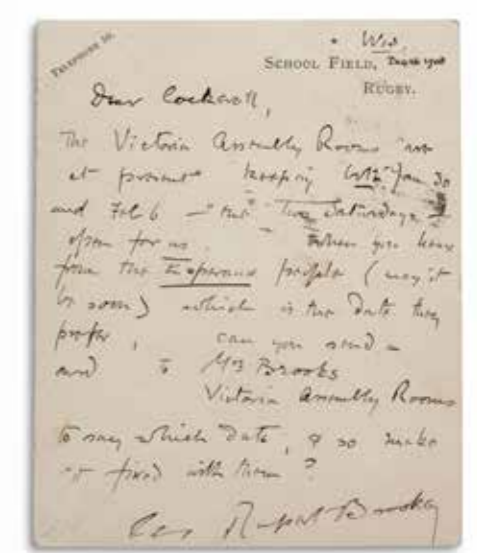 TELEPHONE 10.
Wed.
SCHOOL FIELD, Dec 16 1908
RUGBY.
Dear Cockerell,
The Victoria Assembly Rooms are
at present keeping both Jan 30
and Feb 6 – the two Saturdays –
open for us. When you hear
from the Esperance people (may it
be soon) which is the date they
prefer, can you send a
card to Mrs Brooks
Victoria Assembly Rooms
to say which date, & so make
it fixed with them?
Rupert Brooke